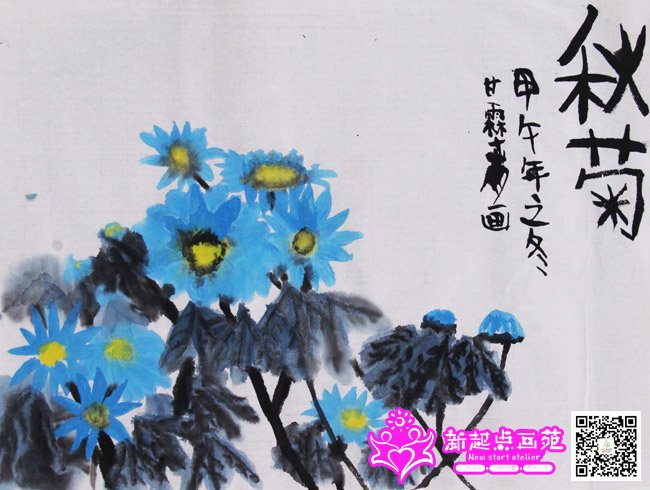 秋菊
甲午年之冬
甘霖画
新起点画苑
New start atelier